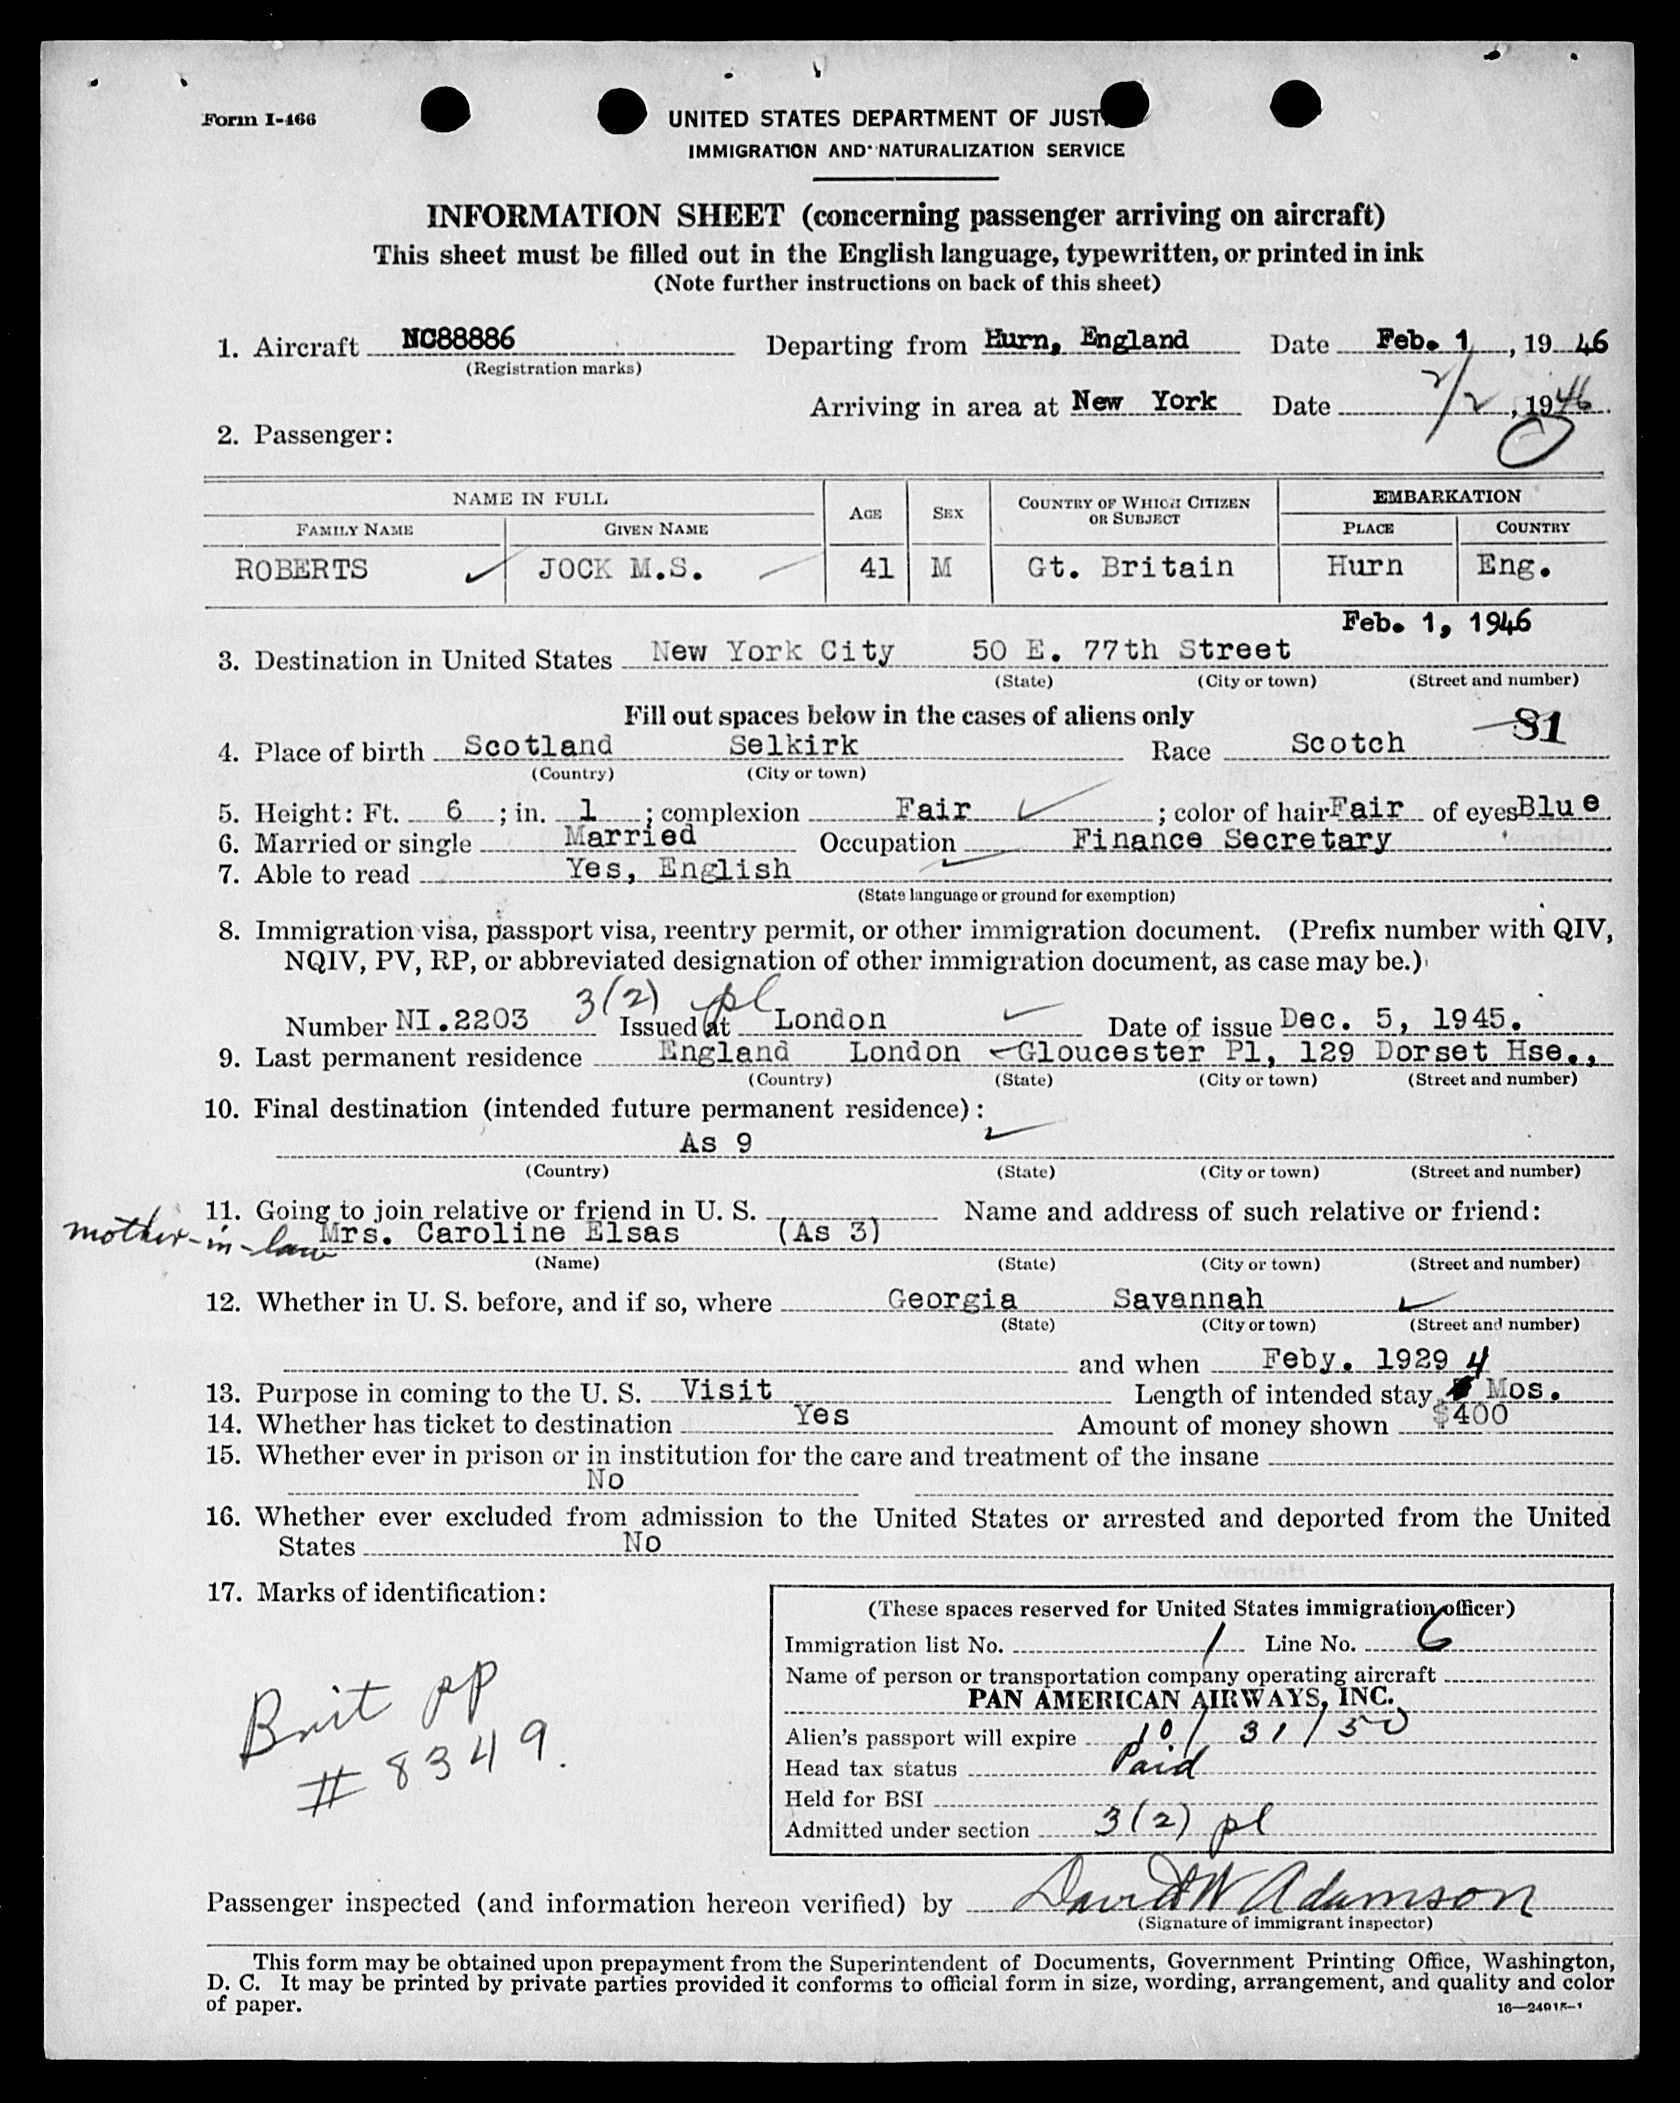 Form I-466
UNITED STATES DEPARTMENT OF JUST
IMMIGRATION AND NATURALIZATION SERVICE
INFORMATION SHEET (concerning passenger arriving on aircraft)
This sheet must be filled out in the English language, typewritten, or printed in ink
(Note further instructions on back of this sheet)
1. Aircraft NC88886 Departing from Hurn, England Date Feb. 1, 1946
(Registration marks)
Arriving in area at New York Date 2/2, 1946
2. Passenger:
NAME IN FULL AGE SEX COUNTRY OF WHICH CITIZEN OR SUBJECT EMBARKATION
FAMILY NAME GIVEN NAME PLACE COUNTRY
ROBERTS JOCK M.S. 41 M Gt. Britain Hurn Eng.
Feb. 1, 1946
3. Destination in United States New York City 50 E. 77th Street
(State) (City or town) (Street and number)
Fill out spaces below in the cases of aliens only
81
4. Place of birth Scotland Selkirk Race Scotch
(Country) (City or town)
5. Height: Ft. 6; in. 1; complexion Fair; color of hair Fair of eyes Blue
6. Married or single Married Occupation Finance Secretary
7. Able to read Yes, English
(State language or ground for exemption)
8. Immigration visa, passport visa, reentry permit, or other immigration document. (Prefix number with QIV,
NQIV, PV, RP, or abbreviated designation of other immigration document, as case may be.)
3(2) pl
Number NI.2203 Issued at London Date of issue Dec. 5, 1945.
9. Last permanent residence England London Gloucester Pl, 129 Dorset Hse.,
(Country) (State) (City or town) (Street and number)
10. Final destination (intended future permanent residence):
As 9
(Country) (State) (City or town) (Street and number)
11. Going to join relative or friend in U. S. Name and address of such relative or friend:
mother-in-law Mrs. Caroline Elsas (As 3)
(Name) (State) (City or town) (Street and number)
12. Whether in U. S. before, and if so, where Georgia Savannah
(State) (City or town) (Street and number)
and when Feby. 1929
13. Purpose in coming to the U. S. Visit Length of intended stay 4 Mos.
14. Whether has ticket to destination Yes Amount of money shown $400
15. Whether ever in prison or in institution for the care and treatment of the insane
No
16. Whether ever excluded from admission to the United States or arrested and deported from the United
States No
17. Marks of identification:
Brit pp
# 8349.
(These spaces reserved for United States immigration officer)
Immigration list No. 1 Line No. 6
Name of person or transportation company operating aircraft
PAN AMERICAN AIRWAYS, INC.
Alien's passport will expire 10/31/50
Head tax status Paid
Held for BSI
Admitted under section 3(2) pl
Passenger inspected (and information hereon verified) by David W Adamson
(Signature of immigrant inspector)
This form may be obtained upon prepayment from the Superintendent of Documents, Government Printing Office, Washington,
D. C. It may be printed by private parties provided it conforms to official form in size, wording, arrangement, and quality and color
of paper.